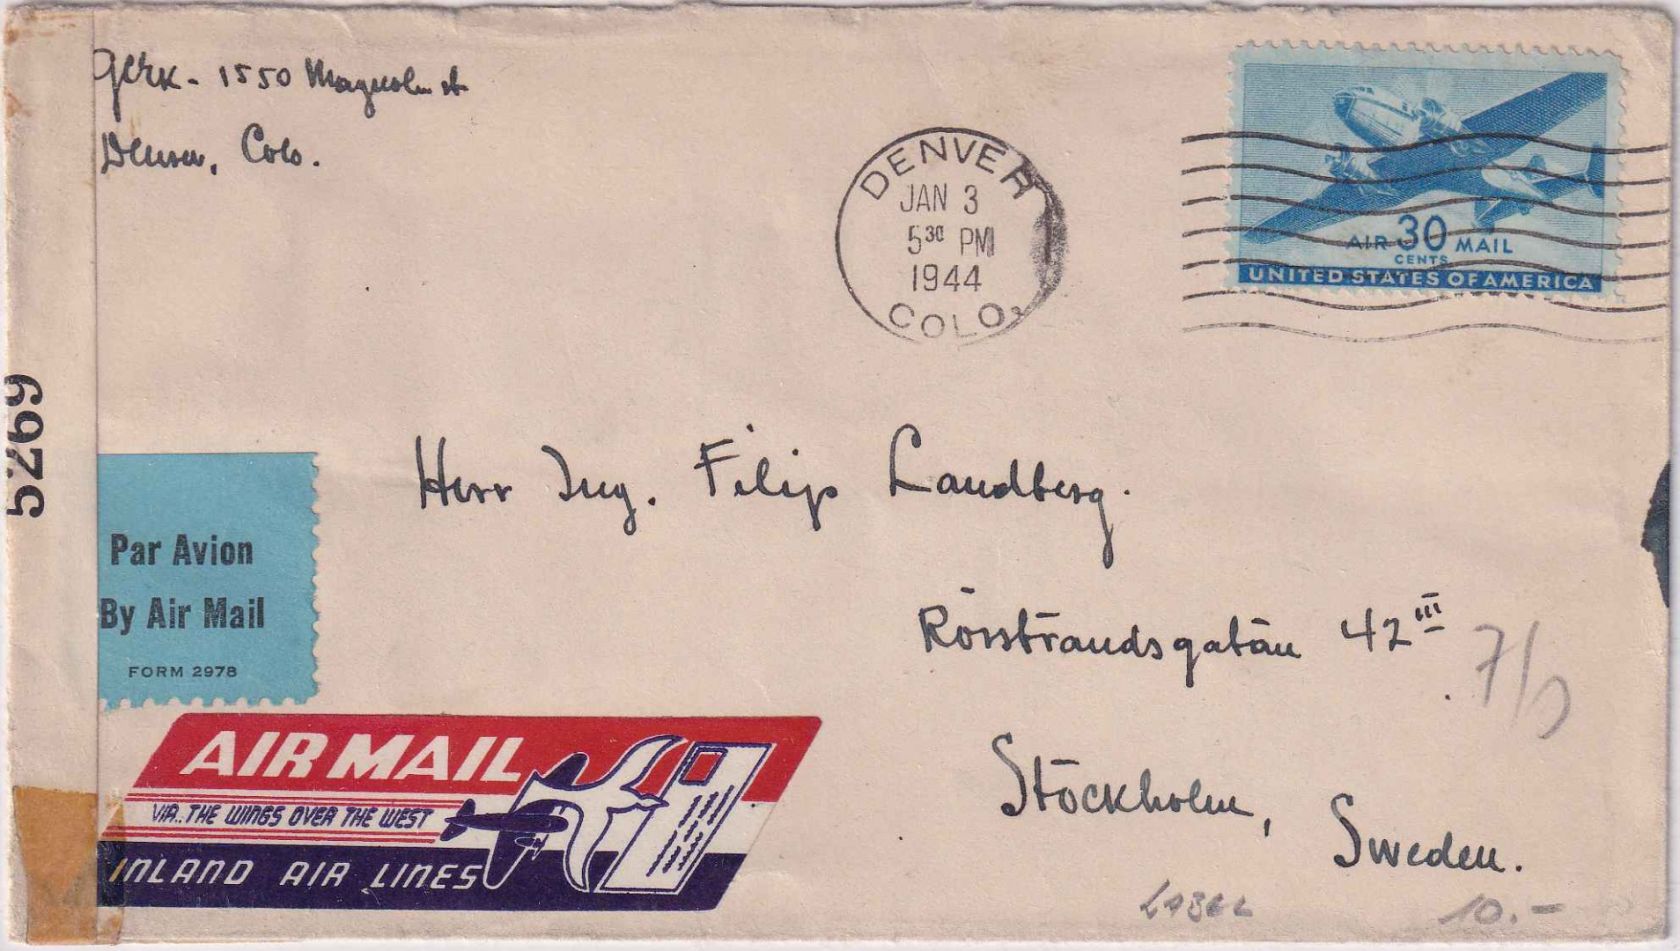 Gerk - 1550 Magnolia st
Denver, Colo.
DENVER
JAN 3
5 30 PM
1944
COLO.
AIR 30 MAIL
CENTS
UNITED STATES OF AMERICA
5269
Herr Ing. Filip Landberg.
Rörstrandsgatan 42 III
7/0
Stockholm,
Sweden.
Par Avion
By Air Mail
FORM 2978
AIR MAIL
VIA.. THE WINGS OVER THE WEST
INLAND AIR LINES
LABEL
10.-